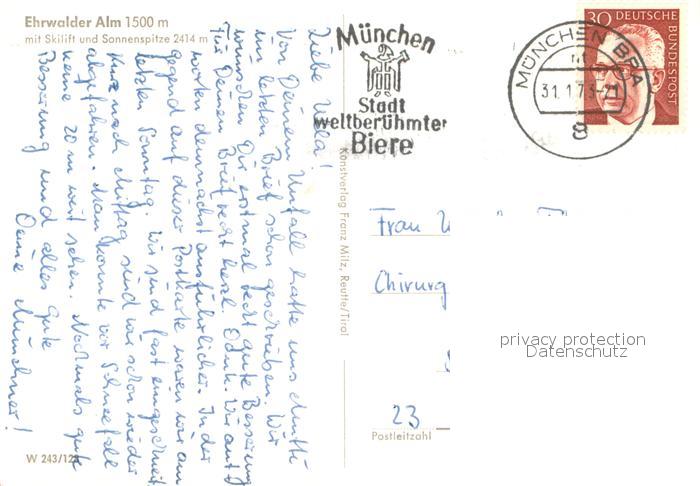 Ehrwalder Alm 1500 m
mit Skilift und Sonnenspitze 2414 m
Liebe Ulla!
Von Deinem Unfall hatte uns Mutti
im letzten Brief schon geschrieben. Wir
wünschen Dir erstmal recht gute Besserung
Für Deinen Brief recht herzl. Dank. Wir
worten demnächst ausführlicher. In der
Gegend auf dieser Postkarte waren wir am
letzten Sonntag. Wir sind fast eingeschneit
Kurz nach Mittag sind wir schon wieder
abgefahren. Man konnte vor Schneefall
keine 20 m weit sehen. Nochmals gute
Besserung und alles Gute
Deine Münchner!
W 243/12
Konstverlag Franz Milz, Reutte/Tirol
München
Stadt
weltberühmter
Biere
MÜNCHEN BPA
31.1.73-21
8
30 DEUTSCHE
BUNDESPOST
Frau
Chirurg
23
Postleitzahl
privacy protection
Datenschutz